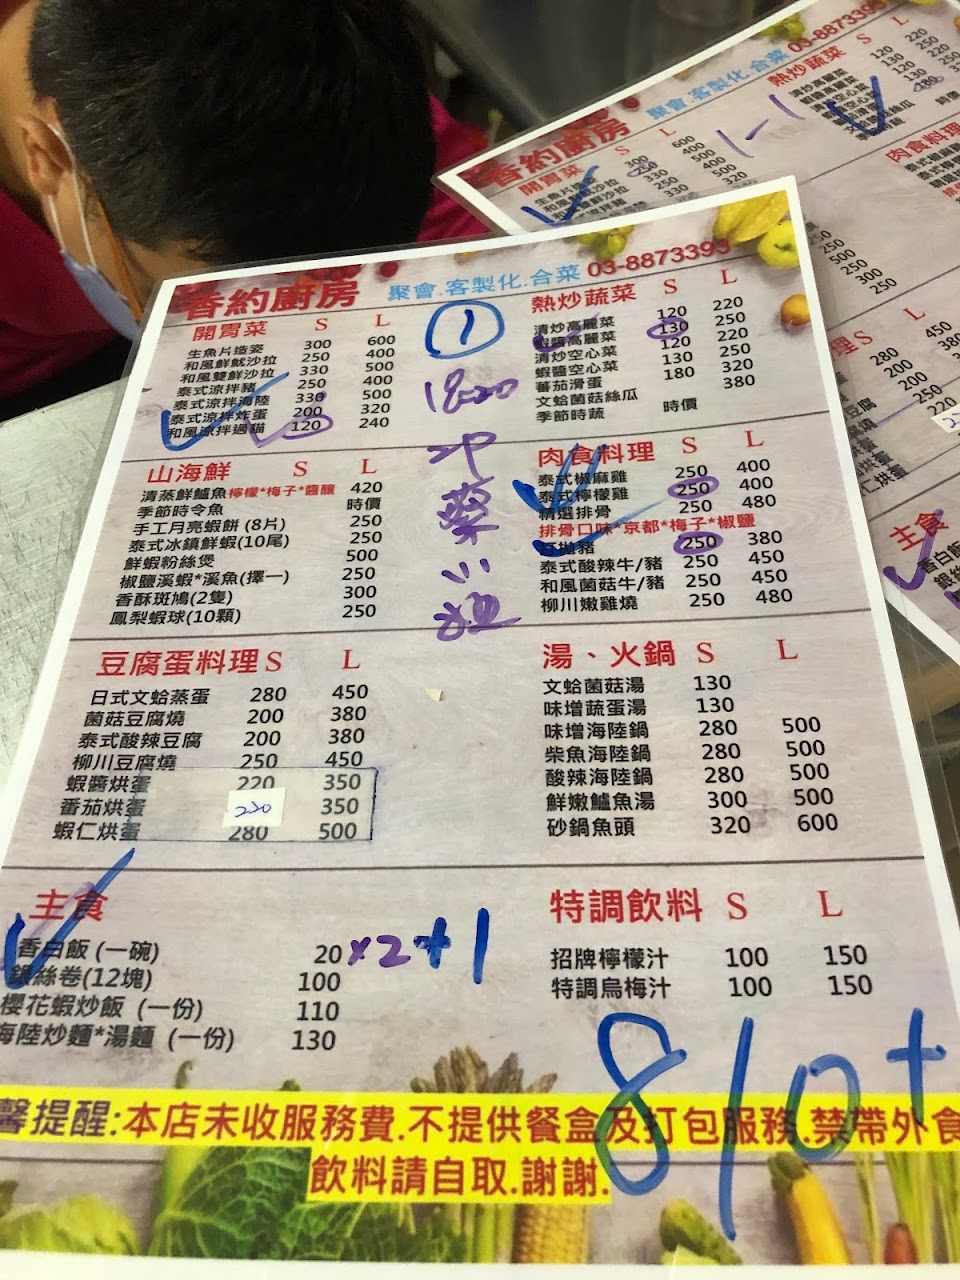 香約廚房 聚會.客製化.合菜 03-8873393
開胃菜 S L
生魚片造姿 300 600
和風鮮魷沙拉 250 400
和風雙鮮沙拉 330 500
泰式涼拌豬 250 400
泰式涼拌海陸 330 500
泰式涼拌炸蛋 200 320
和風涼拌過貓 120 240
山海鮮 S L
清蒸鮮鱸魚檸檬*梅子*醬釀 420
季節時令魚 時價
手工月亮蝦餅 (8片) 250
泰式冰鎮鮮蝦(10尾) 250
鮮蝦粉絲煲 500
椒鹽溪蝦*溪魚(擇一) 250
香酥斑鳩(2隻) 300
鳳梨蝦球(10顆) 250
豆腐蛋料理 S L
日式文蛤蒸蛋 280 450
菌菇豆腐燒 200 380
泰式酸辣豆腐 200 380
柳川豆腐燒 250 450
蝦醬烘蛋 220 350
番茄烘蛋 230 350
蝦仁烘蛋 280 500
主食
香白飯 (一碗) 20 x2+1
銀絲卷(12塊) 100
櫻花蝦炒飯 (一份) 110
海陸炒麵*湯麵 (一份) 130
1
18:20
熱炒蔬菜 S L
清炒高麗菜 120 220
蝦醬高麗菜 130 250
清炒空心菜 120 220
蝦醬空心菜 130 250
蕃茄滑蛋 180 320
文蛤菌菇絲瓜 380
季節時蔬 時價
肉食料理 S L
泰式椒麻雞 250 400
泰式檸檬雞 250 400
精選排骨 250 480
排骨口味*京都*梅子*椒鹽
打拋豬 250 380
泰式酸辣牛/豬 250 450
和風菌菇牛/豬 250 450
柳川嫩雞燒 250 480
湯、火鍋 S L
文蛤菌菇湯 130
味增蔬蛋湯 130
味增海陸鍋 280 500
柴魚海陸鍋 280 500
酸辣海陸鍋 280 500
鮮嫩鱸魚湯 300 500
砂鍋魚頭 320 600
特調飲料 S L
招牌檸檬汁 100 150
特調烏梅汁 100 150
810+
馨提醒:本店未收服務費.不提供餐盒及打包服務.禁帶外食
飲料請自取.謝謝.
香約廚房 聚會.客製化.合菜 03-8873393
開胃菜 S L
熱炒蔬菜 S L
1-1
肉食料理
主食
香白飯